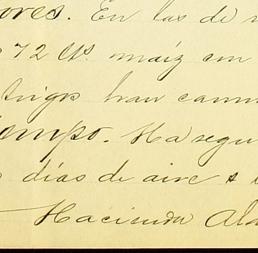 ores. En las de
72 Qs. maíz en
trigos han
tiempo. Ha segui
días de aire &
Hacienda Ala